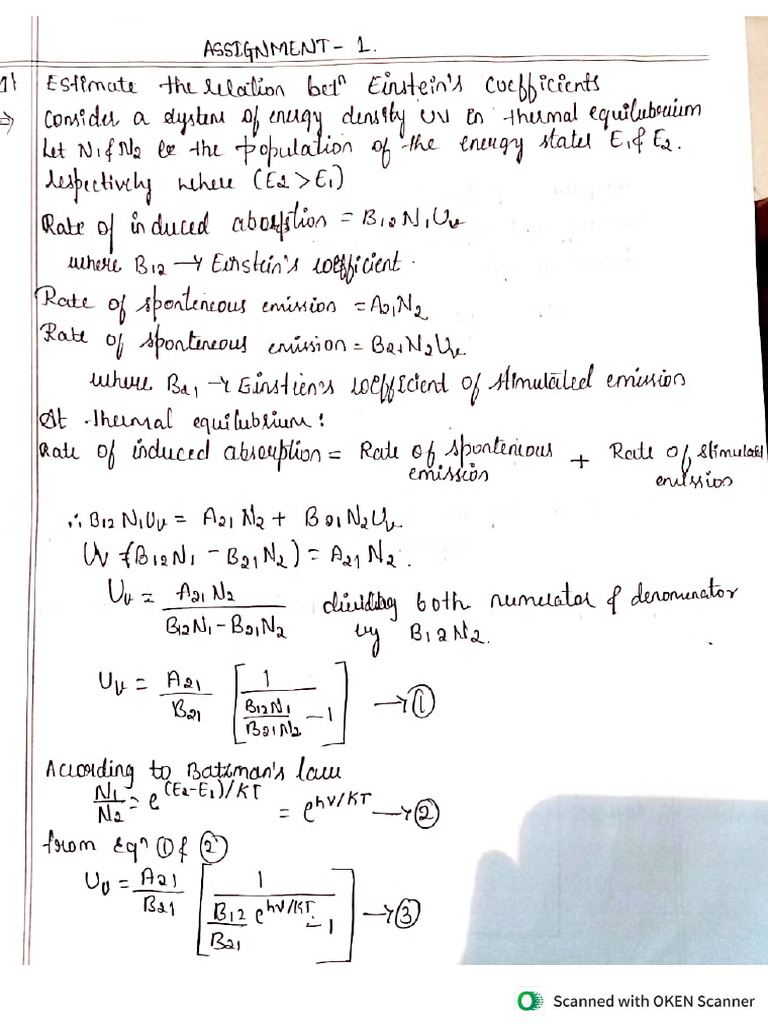 ASSIGNMENT - 1.
1) Estimate the relation betⁿ Einstein's Coefficients
⇒ Consider a system of energy density Uν in thermal equilibruium
Let N₁ & N₂ be the population of the energy states E₁ & E₂.
respectively where (E₂ > E₁)
Rate of induced absorption = B₁₂N₁Uν
where B₁₂ → Einstein's coefficient.
Rate of sponteneous emission = A₂₁N₂
Rate of sponteneous emission = B₂₁N₂Uν
where B₂₁ → Einstien's coefficient of stimulated emission
At thermal equilubrium:
Rate of induced absorption = Rate of sponteneous emission + Rate of stimulated emission
∴ B₁₂N₁Uν = A₂₁N₂ + B₂₁N₂Uν
Uν (B₁₂N₁ - B₂₁N₂) = A₂₁N₂.
Uν = A₂₁N₂ / (B₁₂N₁ - B₂₁N₂) dividing both numerator & denominator by B₁₂N₂.
Uν = A₂₁/B₂₁ [1 / (B₁₂N₁/B₂₁N₂ - 1)] → ①
According to Batzman's law
N₁/N₂ = e^(E₂-E₁)/KT = e^hν/KT → ②
from Eqⁿ ① & ②
Uν = A₂₁/B₂₁ [1 / (B₁₂/B₂₁ e^hν/KT - 1)] → ③
Scanned with OKEN Scanner